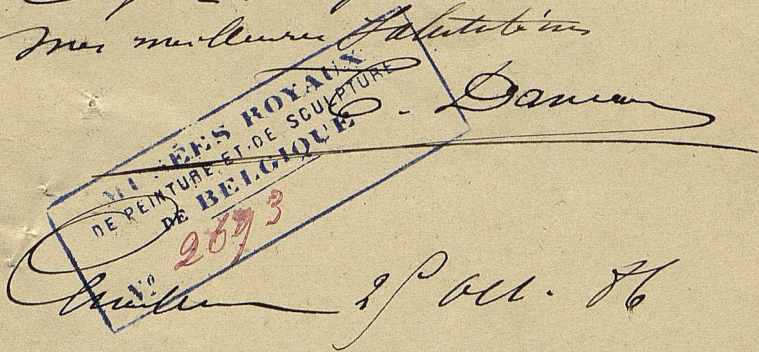 mes meilleures Salutations
MUSÉES ROYAUX
DE PEINTURE ET DE SCULPTURE
DE BELGIQUE
Nº 2693
25 Oct. 86